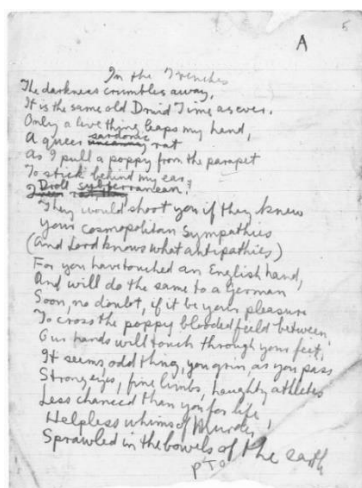 A
5
In the Trenches
The darkness crumbles away,
It is the same old Druid Time as ever.
Only a live thing leaps my hand,
A queer sardonic rat
As I pull a poppy from the parapet
To stick behind my ear.
Droll subterranean,
They would shoot you if they knew
Your cosmopolitan sympathies
(And Lord knows what antipathies)
For you have touched an English hand,
And will do the same to a German
Soon, no doubt, if it be your pleasure
To cross the poppy blooded field between.
Our hands will touch through your feet.
It seems, odd thing, you grin, as you pass
Strong eyes, fine limbs, haughty athletes
Less chanced than you for life,
Helpless whims of Murder,
Sprawled in the bowels of the earth
PTO